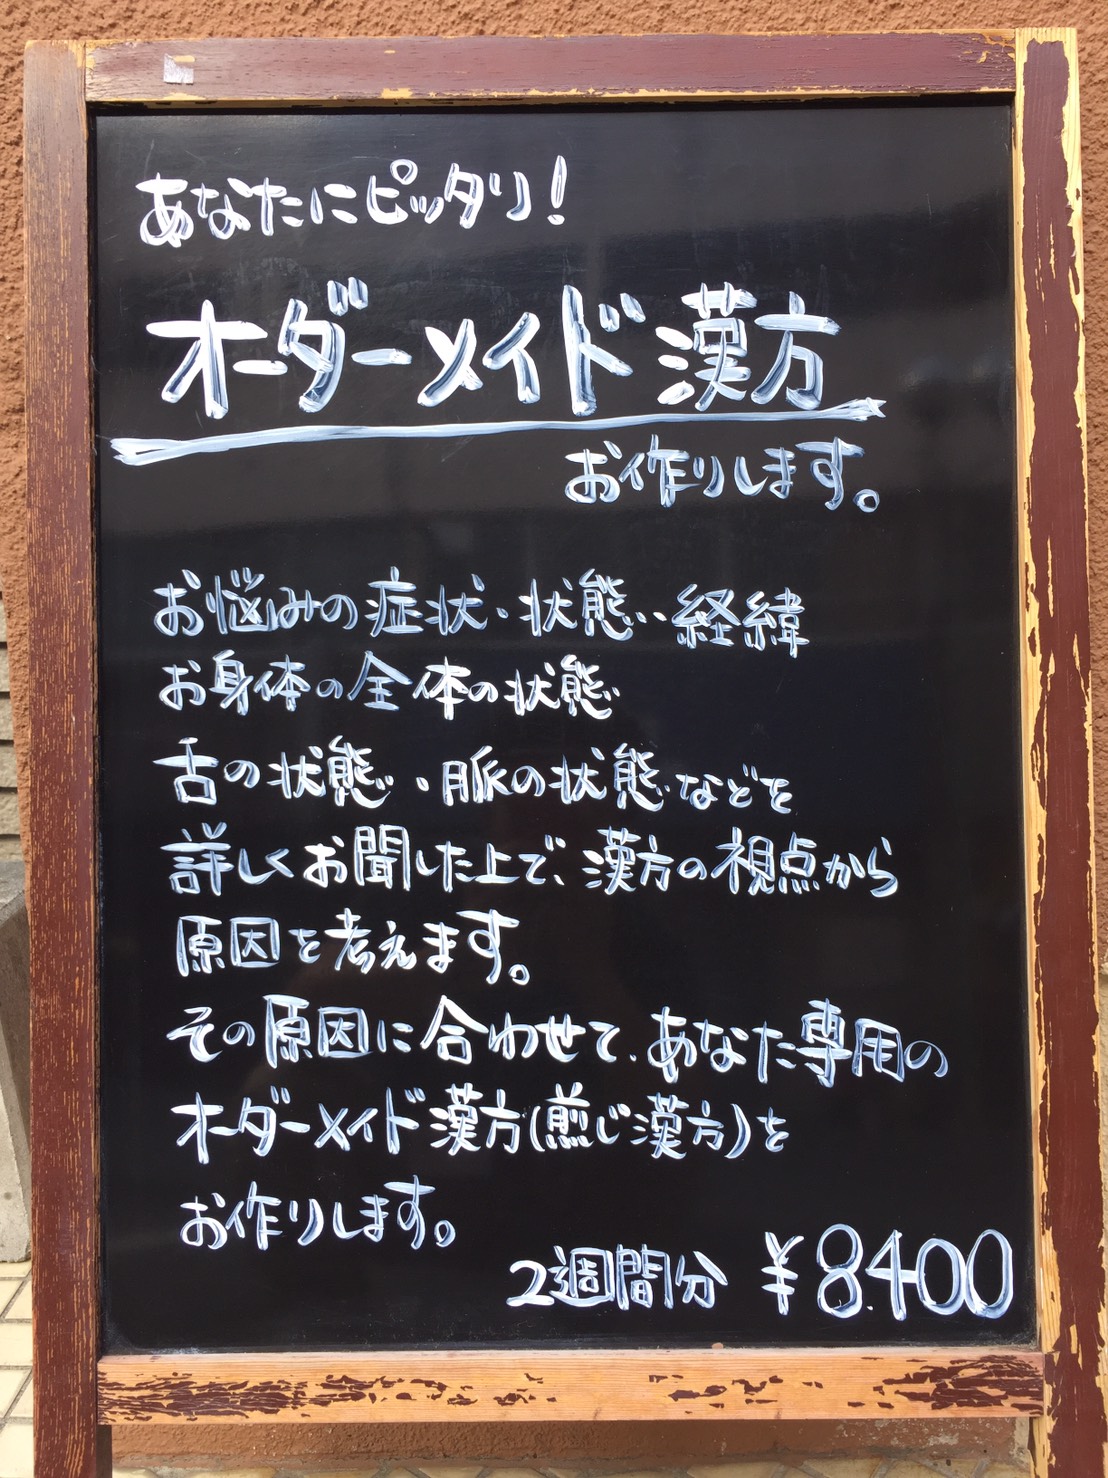 あなたにピッタリ!
オーダーメイド漢方
お作りします。
お悩みの症状・状態・経緯
お身体の全体の状態
舌の状態・脈の状態などを
詳しくお聞した上で、漢方の視点から
原因を考えます。
その原因に合わせて、あなた専用の
オーダーメイド漢方(煎じ漢方)を
お作りします。
2週間分 ¥8.400